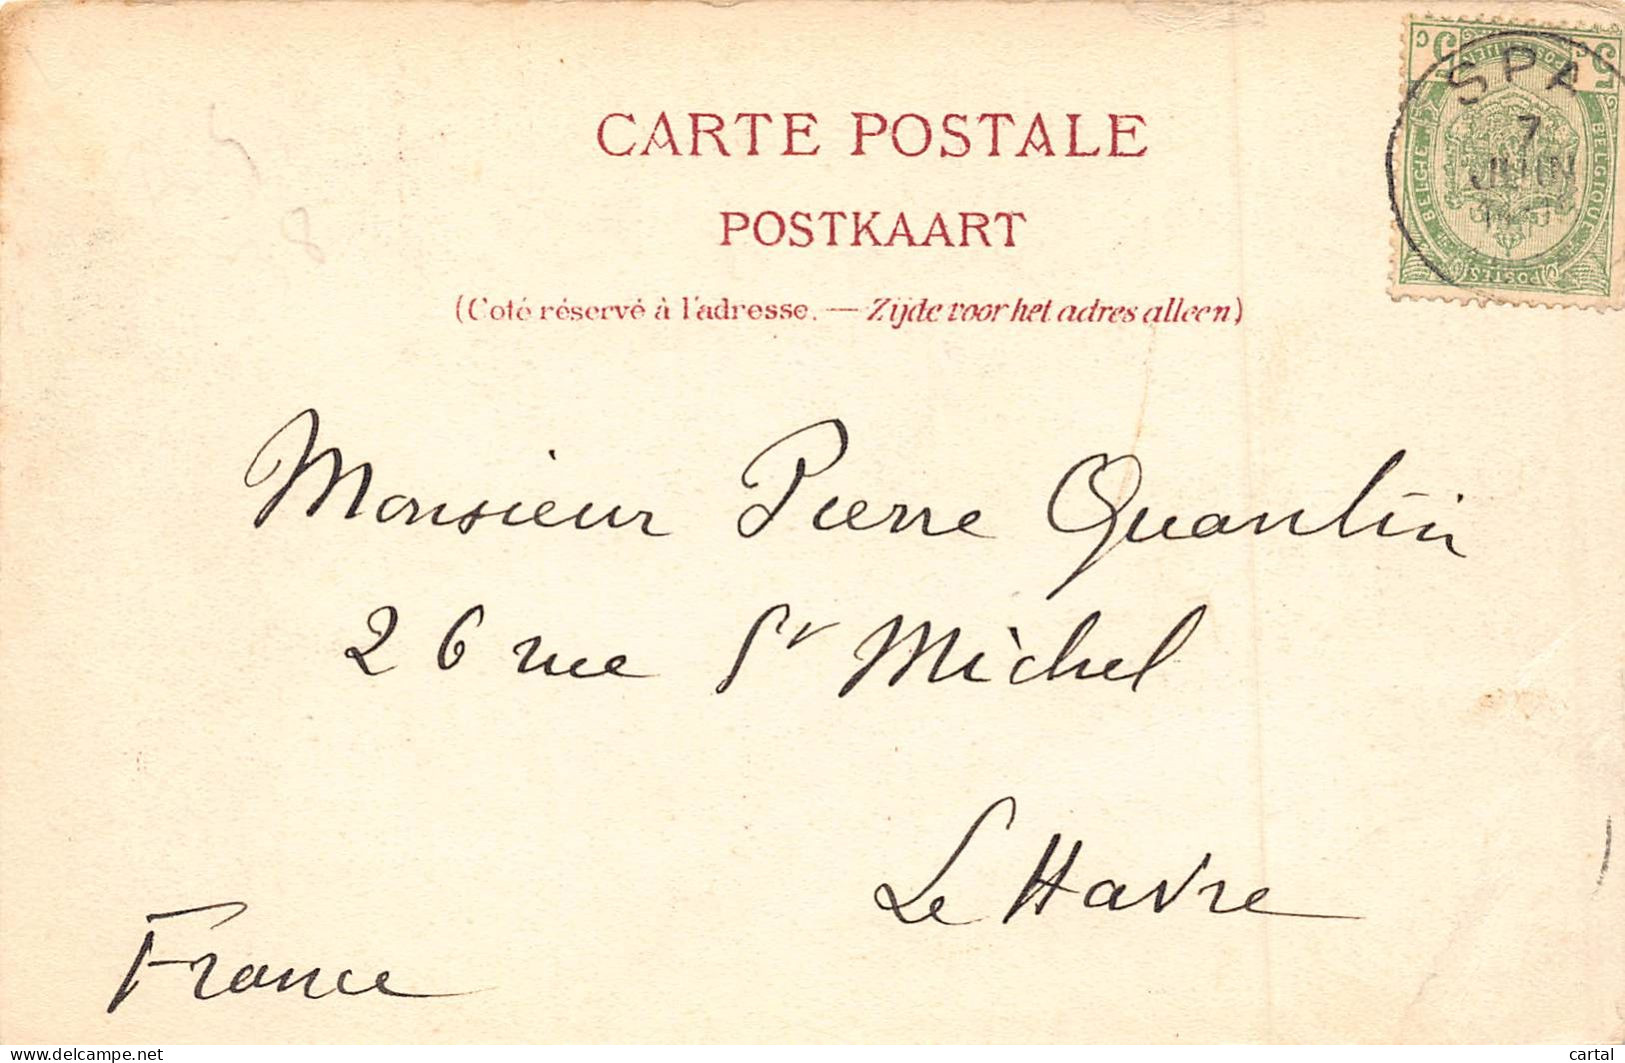 CARTE POSTALE
POSTKAART
(Coté réservé à l'adresse. — Zijde voor het adres alleen)
SPA
7
JUIN
5 C
C 5
BELGIË
BELGIQUE
POSTES
Monsieur Pierre Quantin
26 rue St Michel
Le Havre
France
delcampe.net
cartal